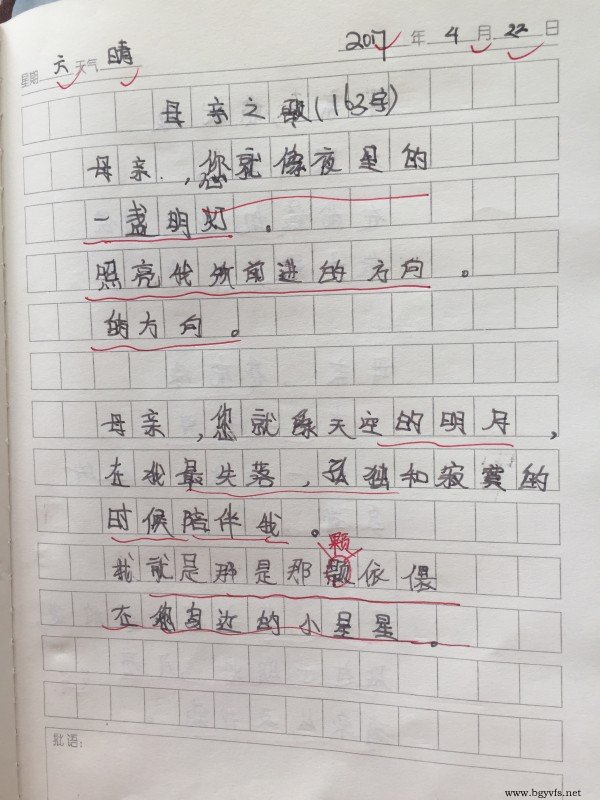 星期 六 天气 晴 2017 年 4 月 22 日
母亲之歌(163字)
母亲,您就像夜里的
一盏明灯。
照亮我们前进的方向。
的方向。
母亲,您就像天空的明月,
在我最失落,孤独和寂寞的
时候陪伴我。
颗
我就是那是那题依偎
在您身边的小星星。
批语:
www.bgyvfs.net